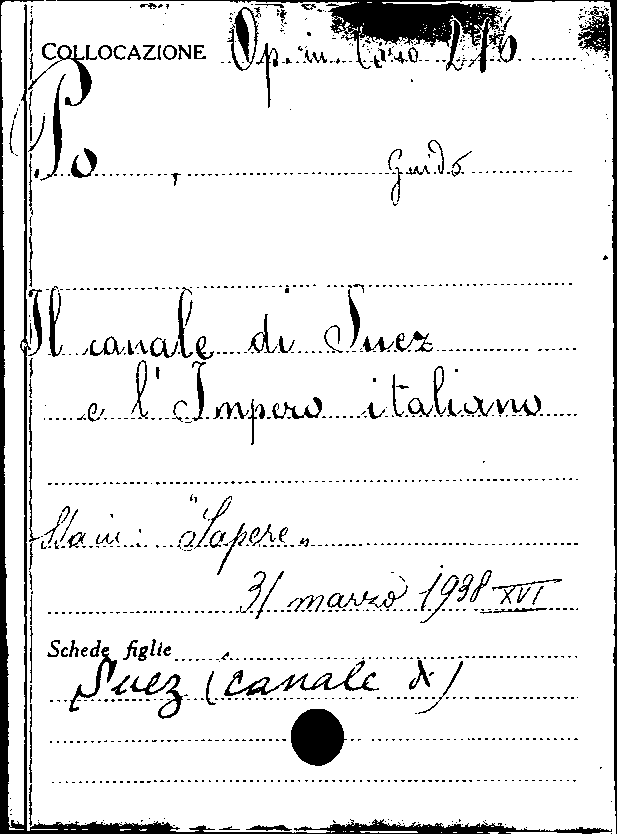 COLLOCAZIONE Op. in. Coro 216
Po , Guido
Il canale di Suez
e l'Impero italiano
Sta in: "Sapere„
31 marzo 1938 XVI
Schede figlie
Suez (canale di)